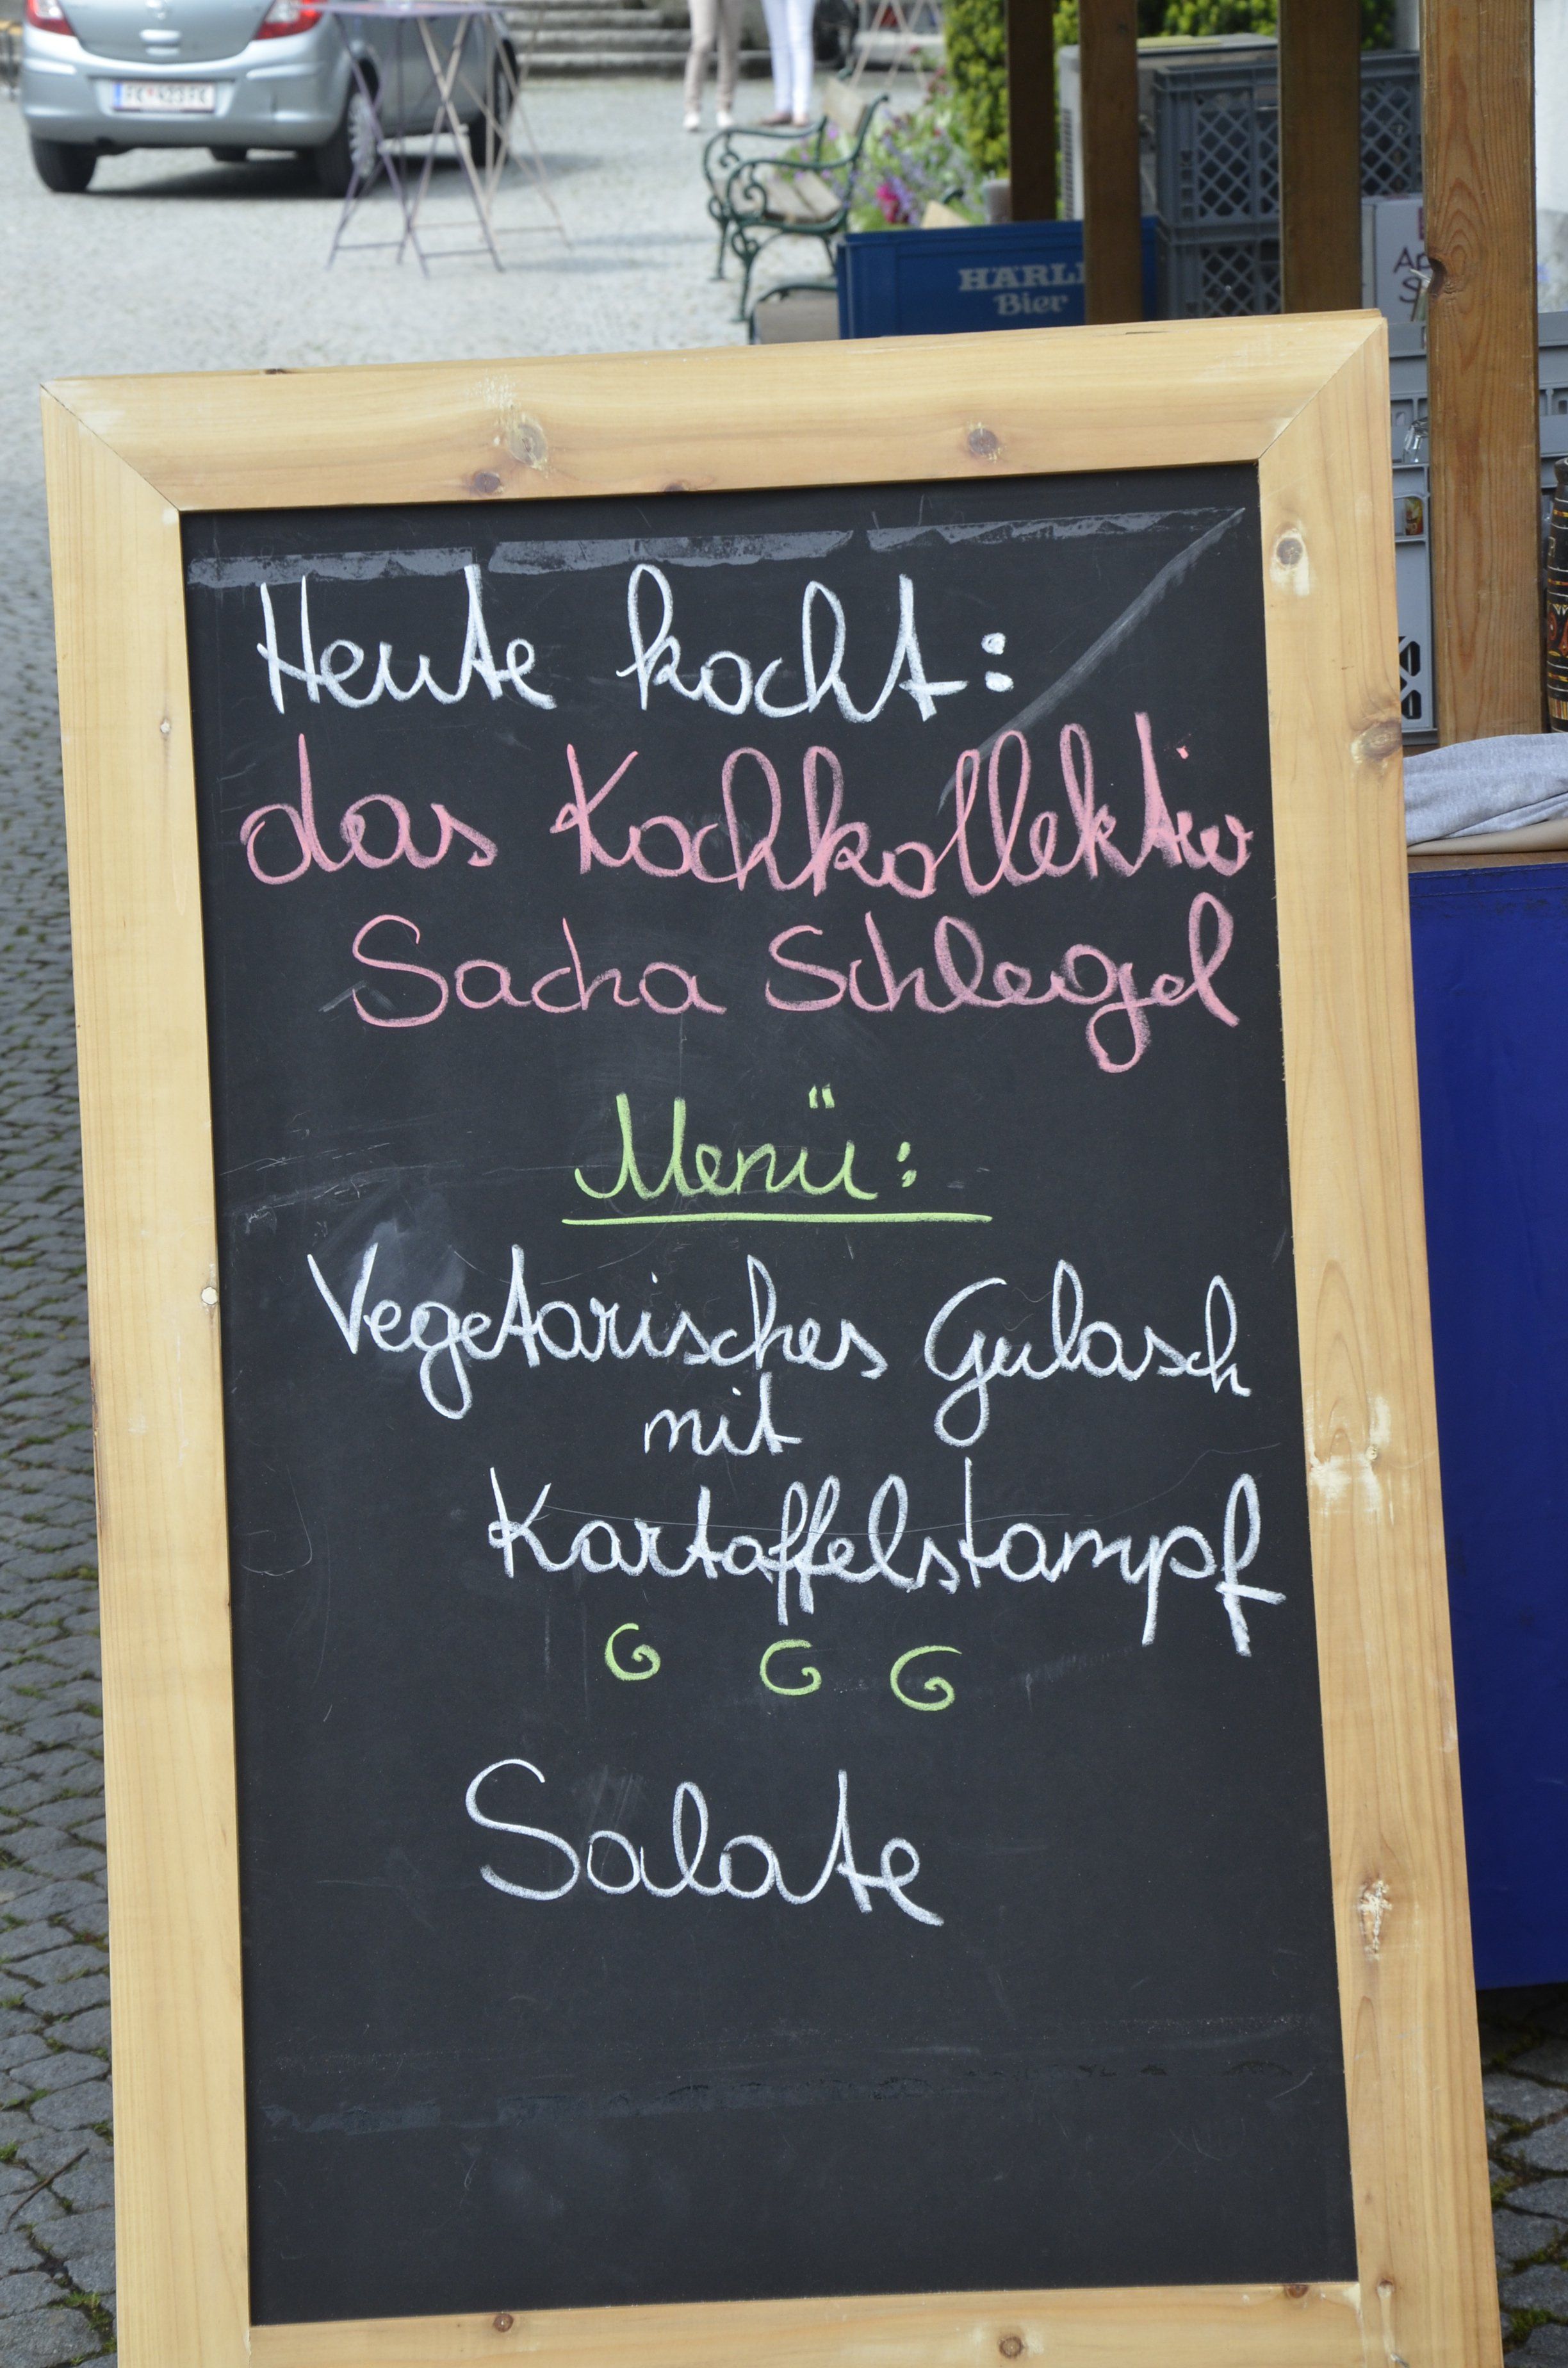 HÄRLE
Bier
Heute kocht:
das Kochkollektiv
Sacha Schlegel
Menü:
Vegetarisches Gulasch
mit
Kartoffelstampf
Salate